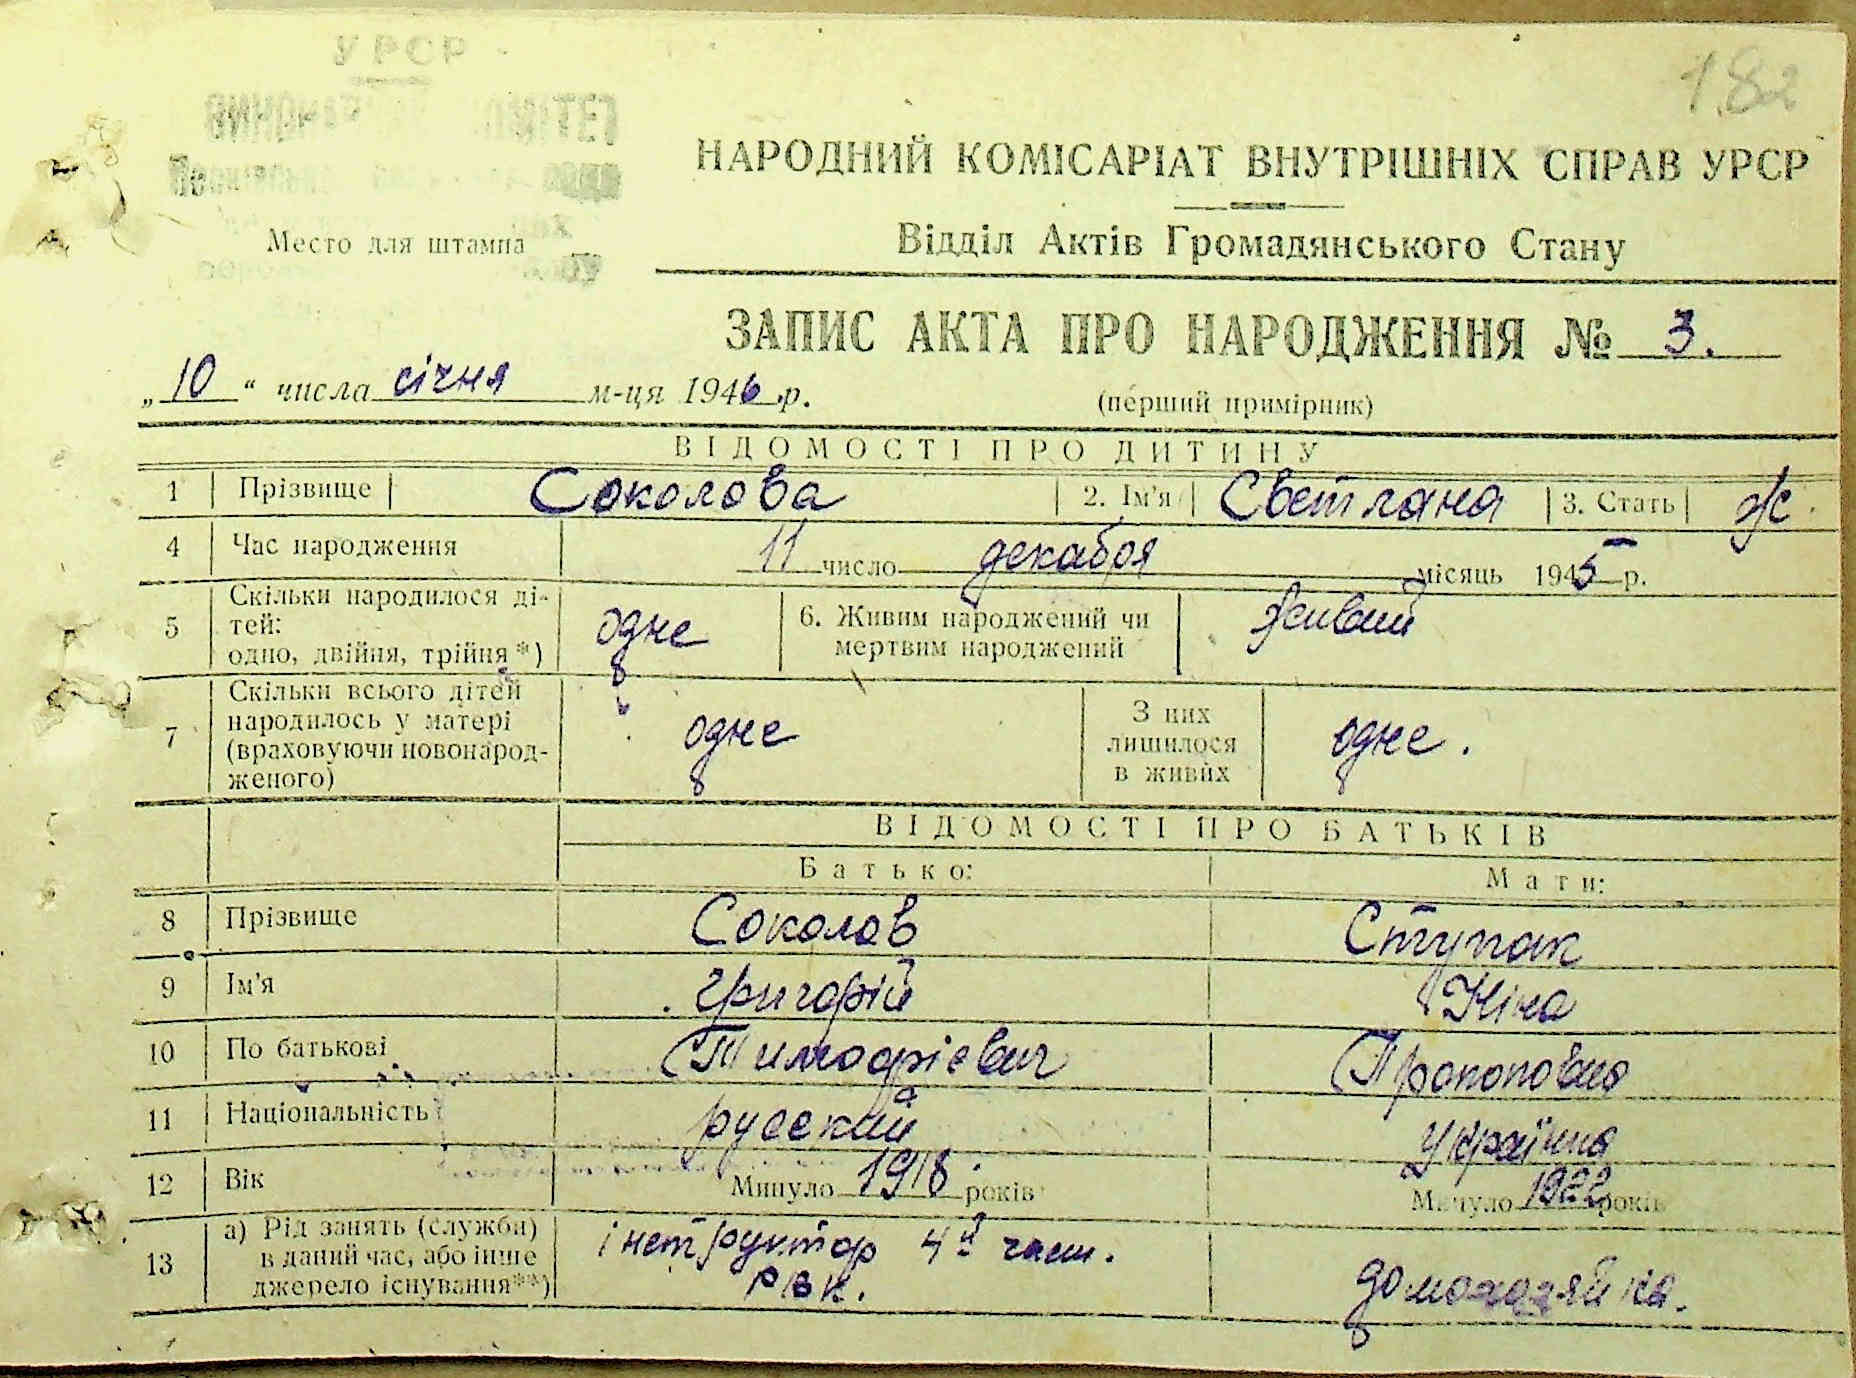 182
УРСР
НАРОДНИЙ КОМІСАРІАТ ВНУТРІШНІХ СПРАВ УРСР
Место для штампа
Відділ Актів Громадянського Стану
ЗАПИС АКТА ПРО НАРОДЖЕННЯ № 3.
„ 10 “ числа січня м-ця 1946 р.
(перший примірник)
ВІДОМОСТІ ПРО ДИТИНУ
1 Прізвище Соколова 2. Ім'я Светлана 3. Стать ж.
4 Час народження 11 число декабря місяць 1945 р.
5 Скільки народилося ді-
тей:
одно, двійня, трійня *) одне
6. Живим народжений чи
мертвим народжений живий
7 Скільки всього дітей
народилось у матері
(враховуючи новонарод-
женого) одне
З них
лишилося
в живих одне.
ВІДОМОСТІ ПРО БАТЬКІВ
Батько: Мати:
8 Прізвище Соколов Ступак
9 Ім'я Григорій Ніна
10 По батькові Тимофієвич
11 Національність русский Українка
12 Вік Минуло 1918 років Минуло 1922 років
13 а) Рід занять (служби)
в даний час, або інше
джерело існування**)
інструктор 4й част.
РВК.
домохозяйка.